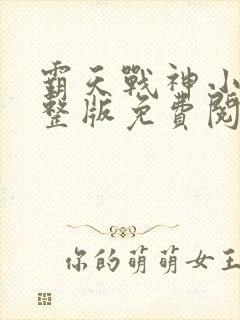 霸天戰神小
整版免費閱
你的萌萌女王